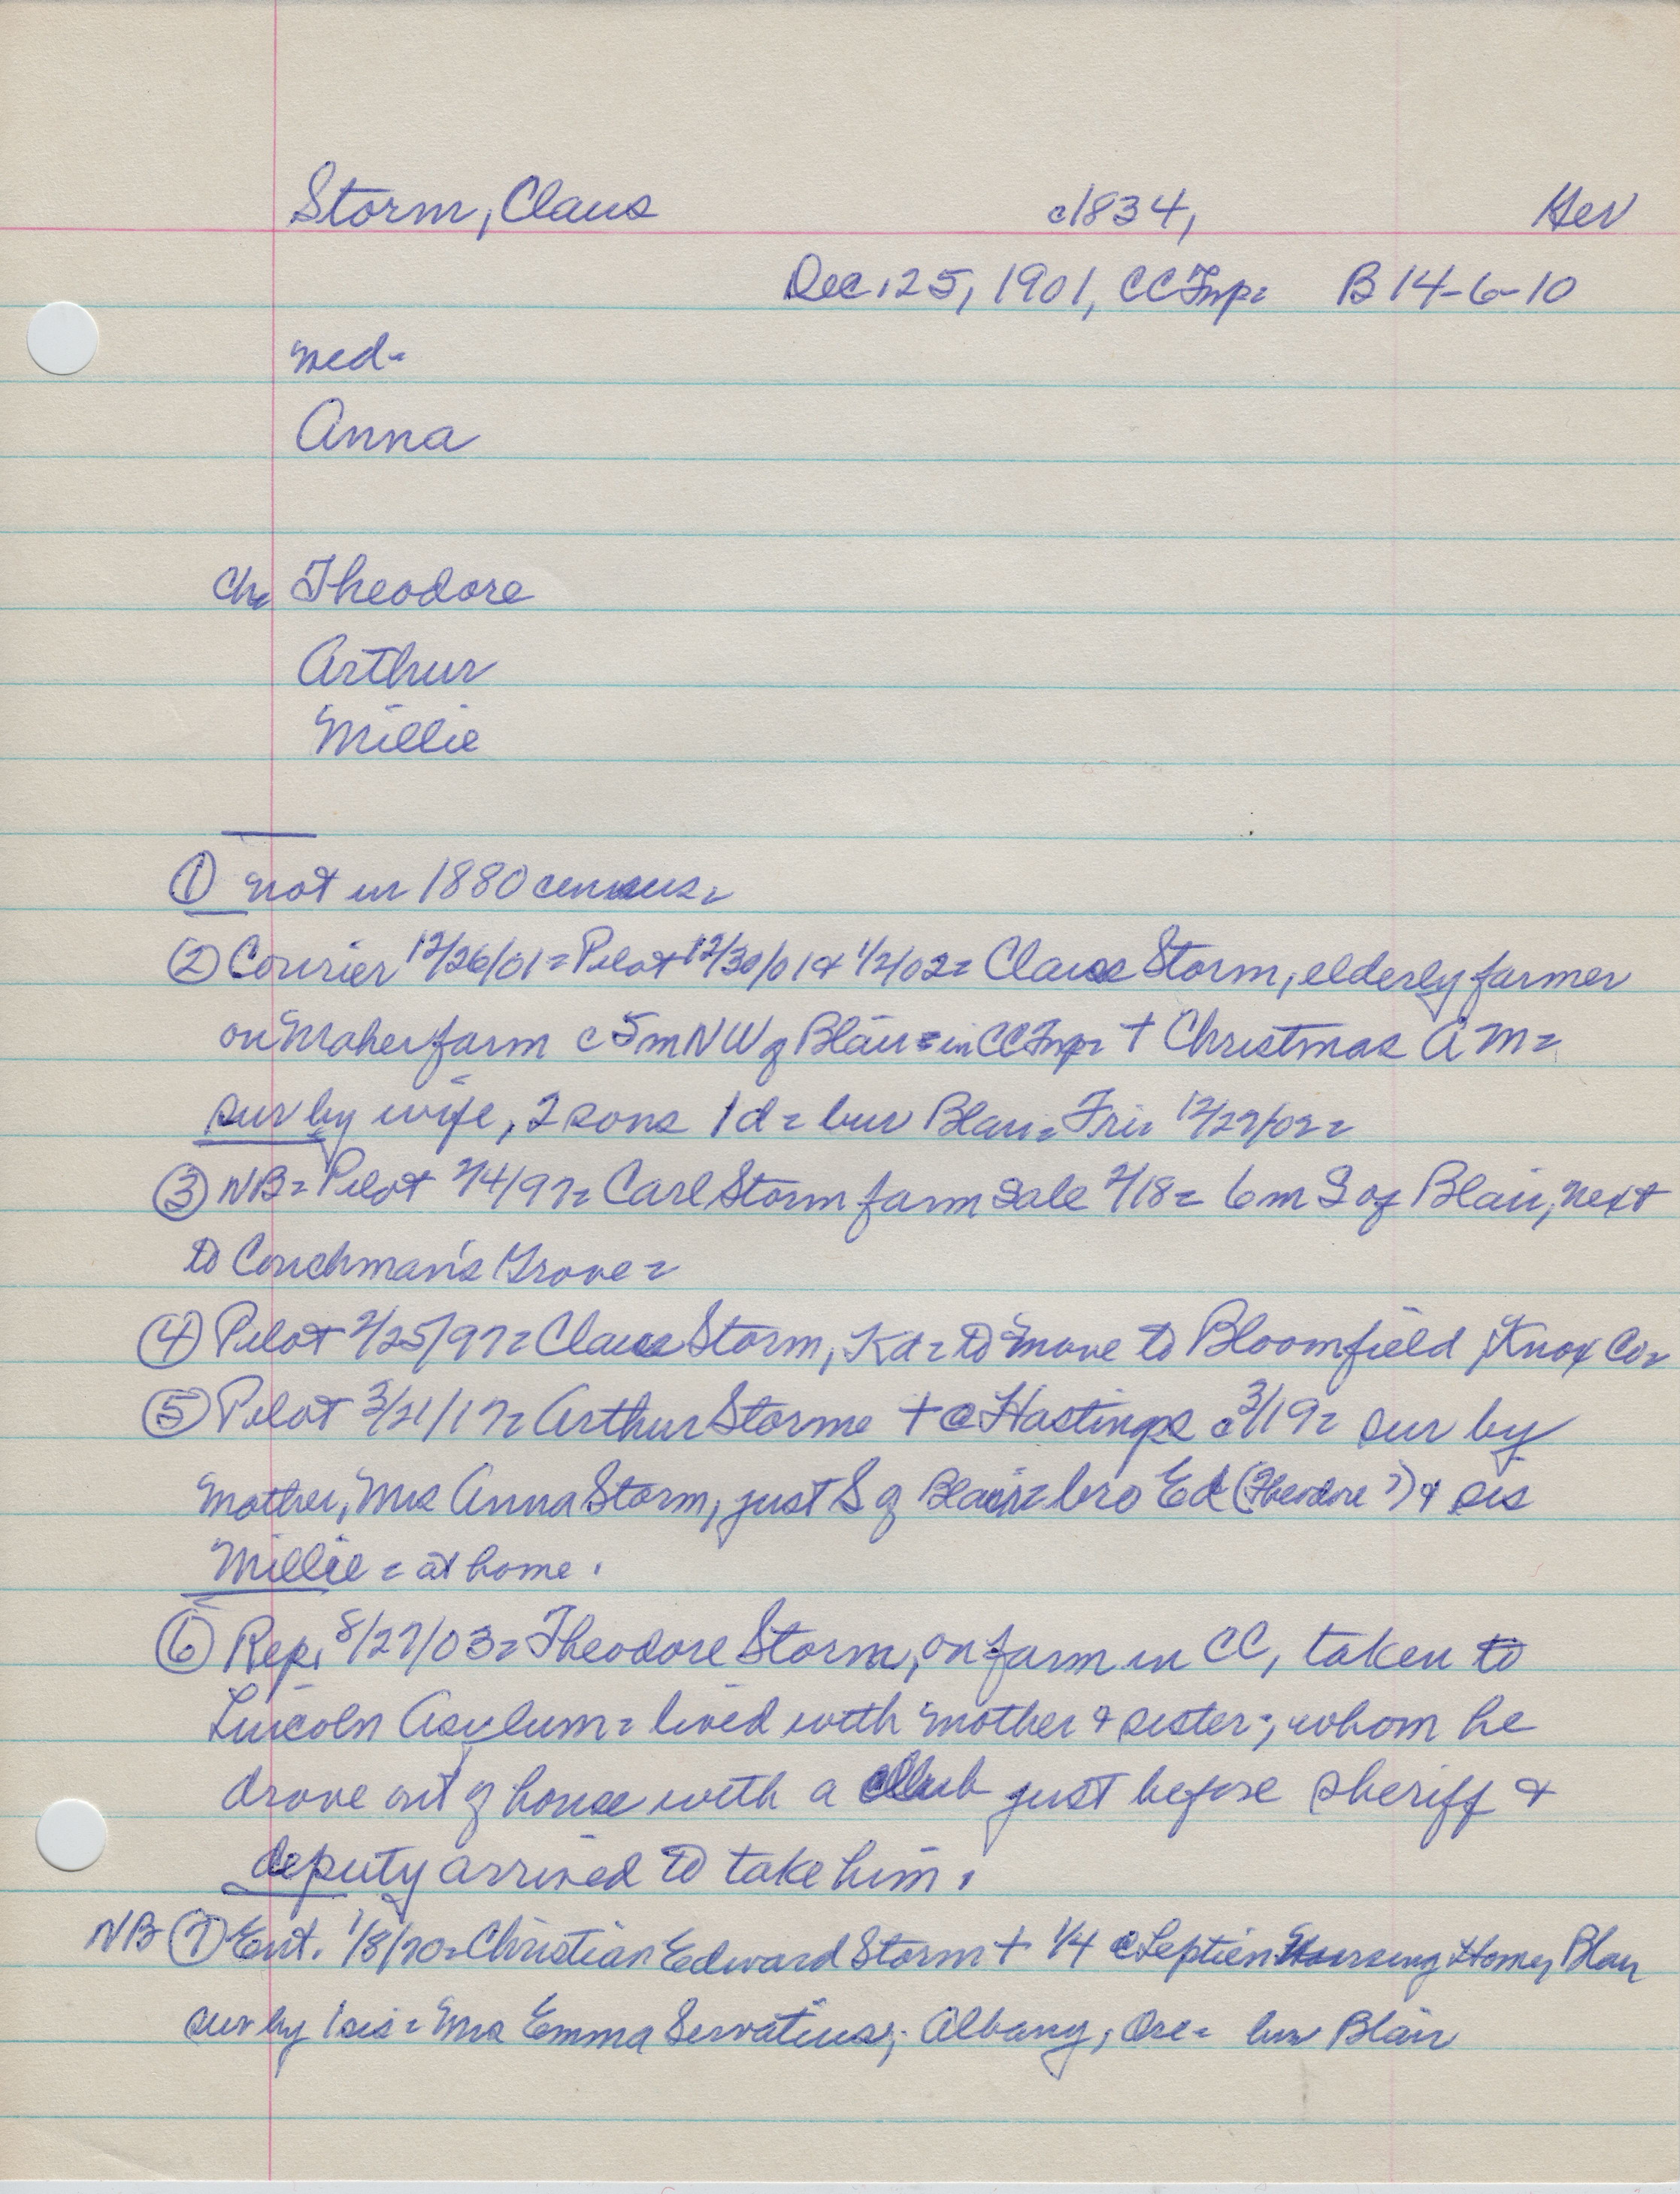 Storm, Claus c1834, Ger
Dec. 25, 1901, CC Twp= B 14-6-10
med-
Anna
Ch= Theodore
Arthur
Millie
① not in 1880 census=
② Courier 12/26/01= Pilot 12/30/01 & 1/2/02= Claus Storm, elderly farmer
on Maher farm c 5 m NW of Blair= in CC Twp= † Christmas AM=
sur by wife, 2 sons 1 d= bur Blair= Fri= 12/27/02=
③ NB= Pilot 2/4/97= Carl Storm farm sale 2/18= 6 m S of Blair, next
to Couchman's Grove=
④ Pilot 2/25/97= Claus Storm, Kd= to move to Bloomfield, Knox Co=
⑤ Pilot 3/21/17= Arthur Storm † @ Hastings c 3/19= sur by
mother, Mrs Anna Storm, just S of Blair= bro Ed (Theodore ?) & sis
Millie= at home.
⑥ Rep. 8/27/03= Theodore Storm, on farm in CC, taken to
Lincoln Asylum= lived with mother & sister, whom he
drove out of house with a club just before sheriff &
deputy arrived to take him.
NB ⑦ Ent. 1/8/70= Christian Edward Storm † 1/4 @ Leptien Nursing Home, Blair
sur by 1 sis= Mrs Emma Servatius, Albany, Ore= bur Blair